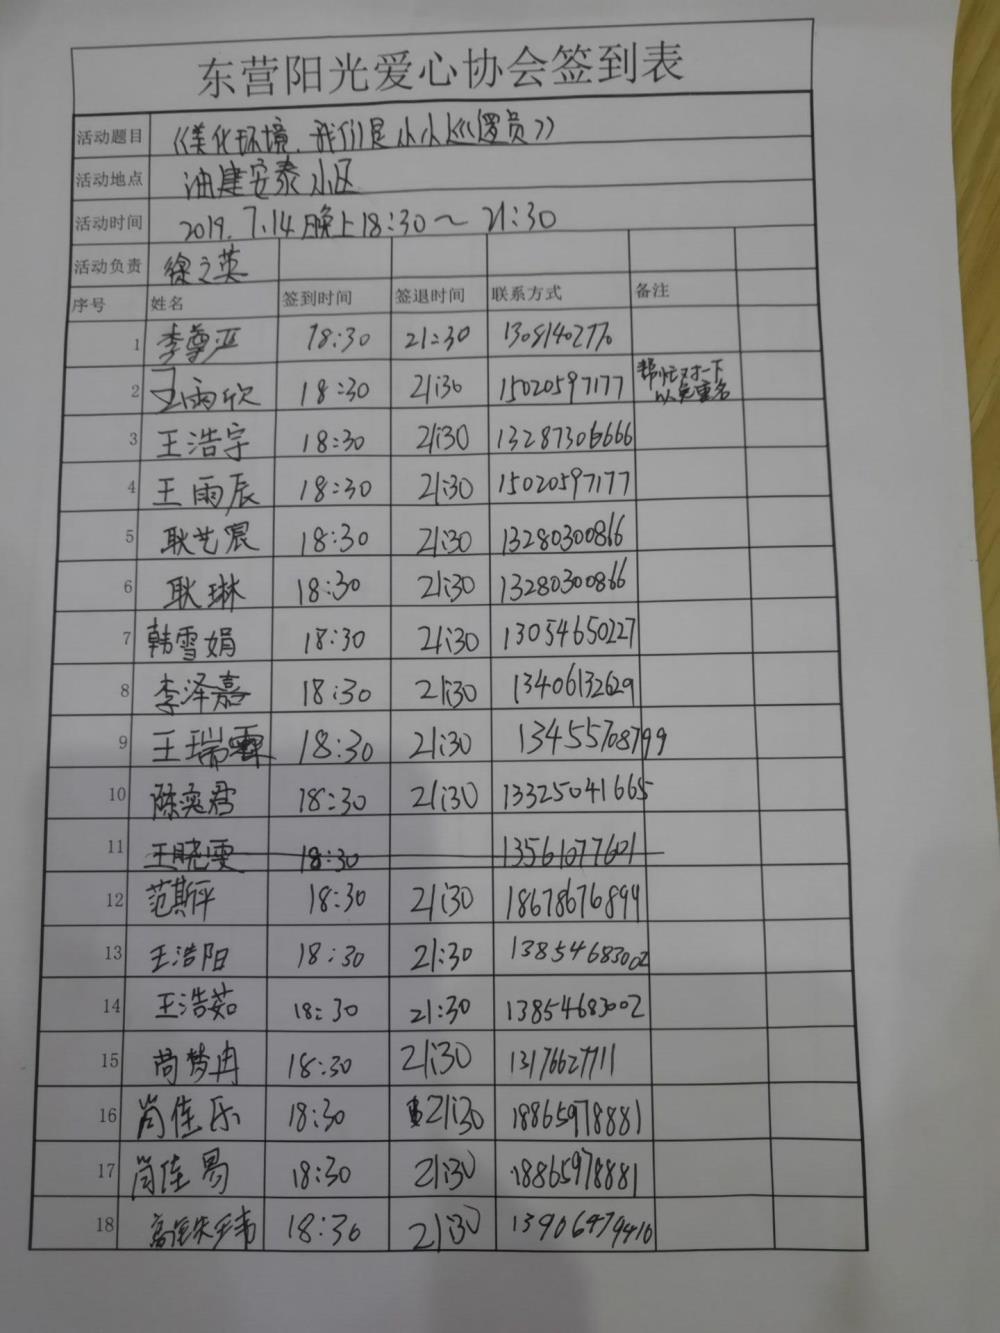 东营阳光爱心协会签到表
活动题目 《美化环境，我们是小小
活动地点 油建安泰小区
活动时间 2019.7.14晚上18:30～21:30
活动负责 徐之英
序号 姓名 签到时间 签退时间 联系方式 备注
1 李尊严 18:30 21:30 13081402770
2 王雨欣 18:30 21:30 15020597177 帮忙对一下以免重名
3 王浩宇 18:30 21:30 13287306666
4 王雨辰 18:30 21:30 15020597177
5 耿艺宸 18:30 21:30 13280300866
6 耿琳 18:30 21:30 13280300866
7 韩雪娟 18:30 21:30 13054650227
8 李泽嘉 18:30 21:30 13406132629
9 王瑞霖 18:30 21:30 13455708799
10 陈奕君 18:30 21:30 13325041665
11 王晓雯 18:30 13561077601
12 范斯评 18:30 21:30 18678676894
13 王浩阳 18:30 21:30 13854683002
14 王浩茹 18:30 21:30 13854683002
15 尚梦冉 18:30 21:30 13176627711
16 尚佳乐 18:30 21:30 18865978881
17 尚佳易 18:30 21:30 18865978881
18 18:30 21:30 13906479410